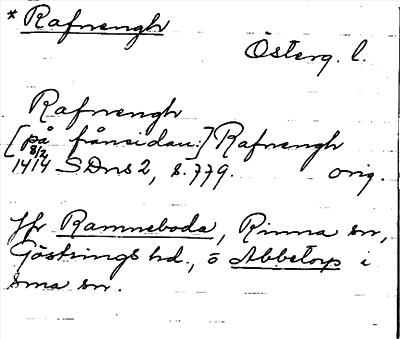 * Rafnengh
Österg. l.
Rafnengh
[på frånsidan:] Rafnengh
8/2
1414 SDns 2, s. 779. orig.
Jfr Ramneboda, Rinna sn,
Göstrings hd., o Abbetorp i
sma sn.